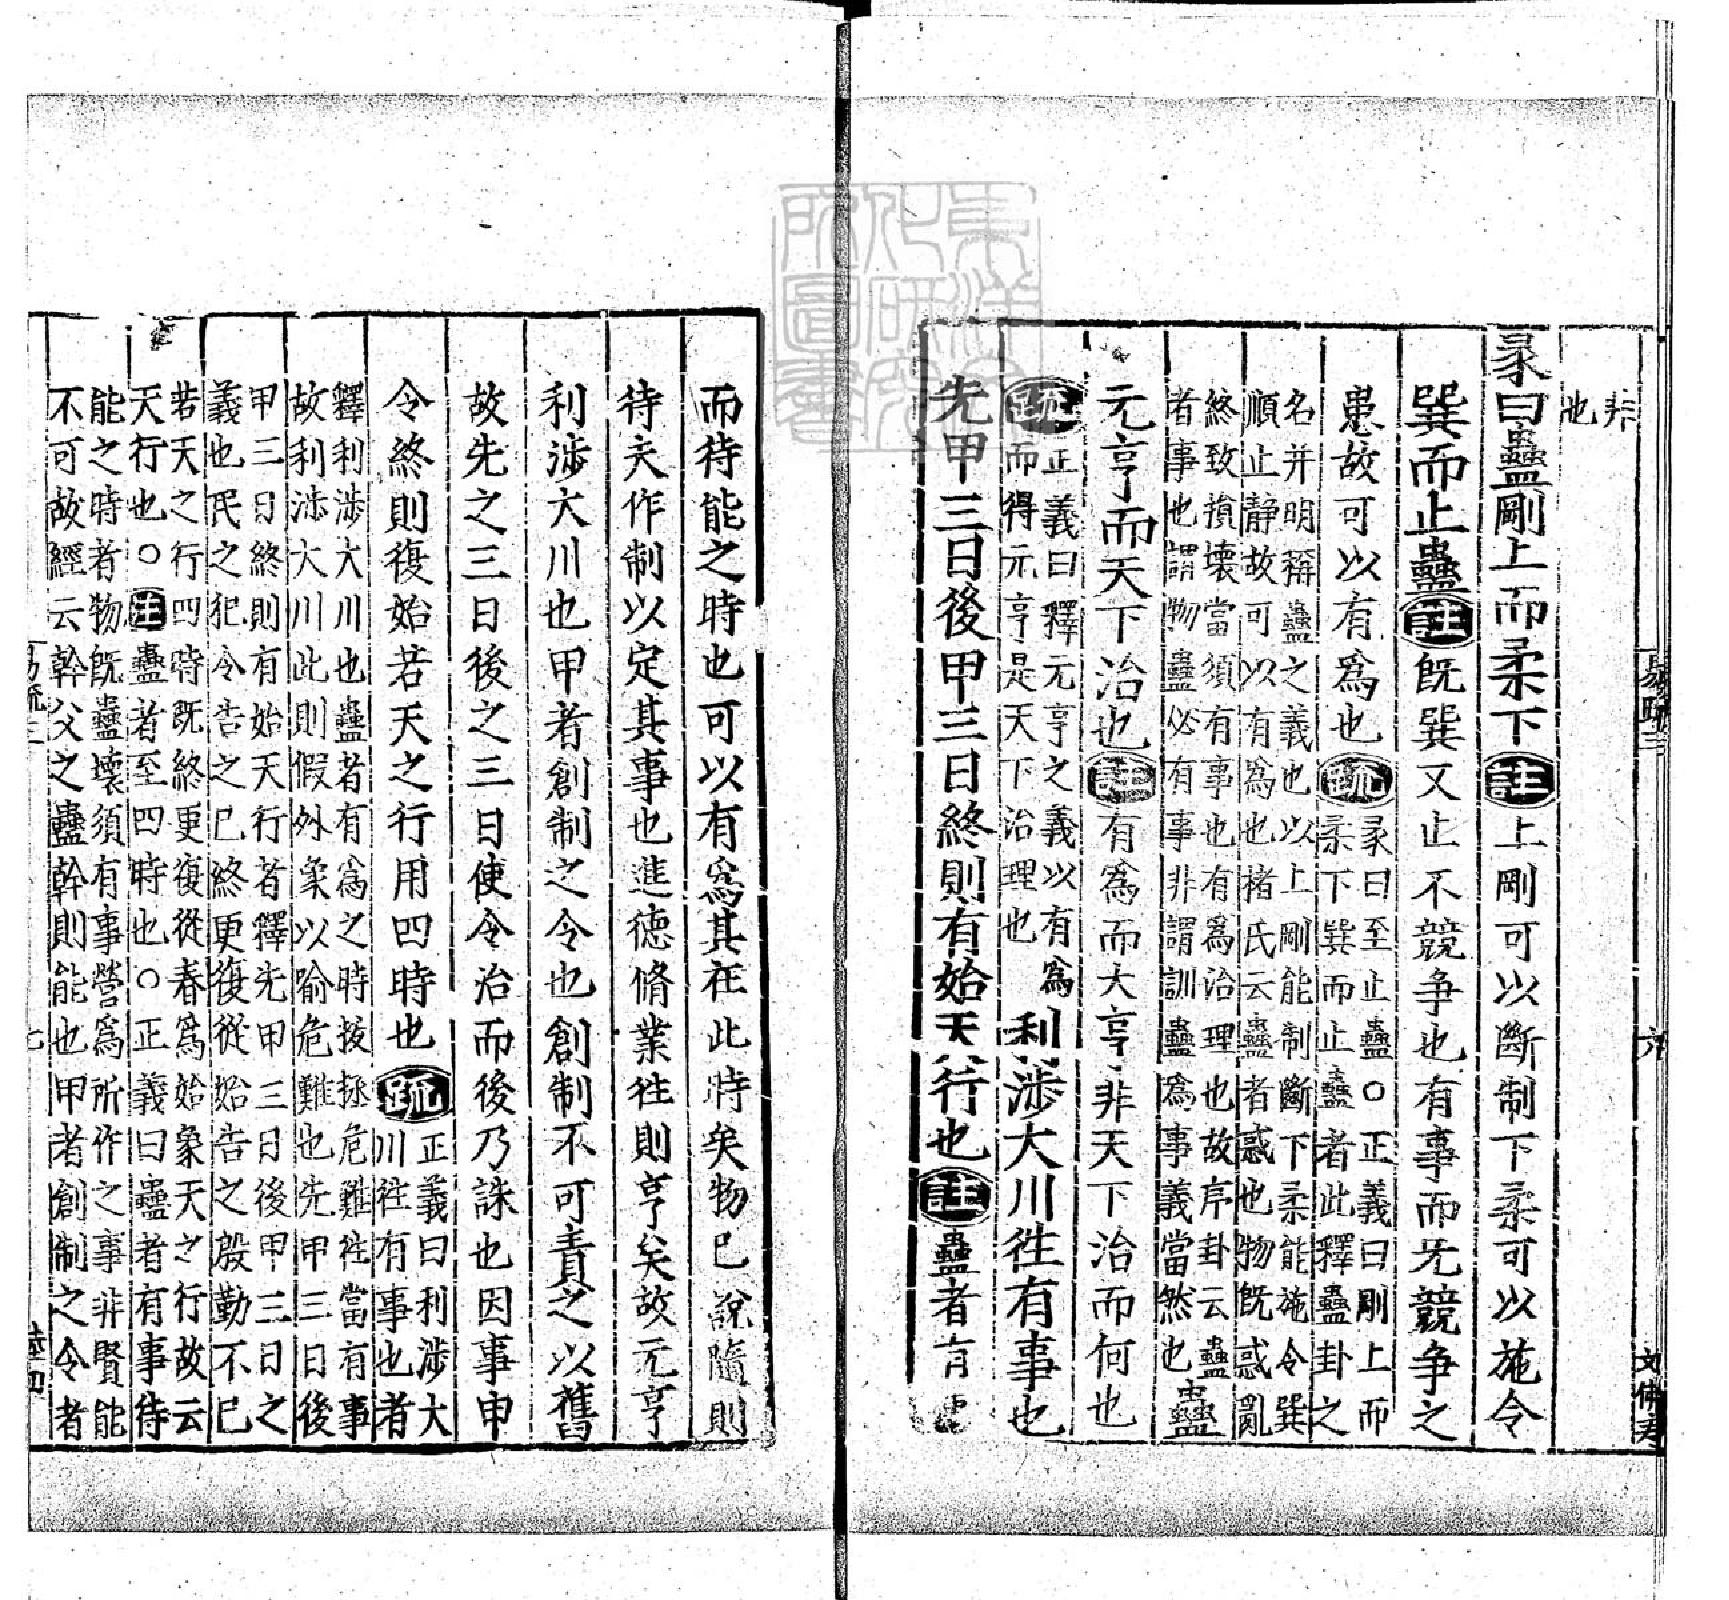 非
也
彖曰蠱剛上而柔下註上剛可以斷制下柔可以施令
巽而止蠱註旣巽又止不競争也有事而无競争之
患故可以有爲也疏彖曰至止蠱○正義曰剛上而
柔下巽而止蠱者此釋蠱卦之
名并明稱蠱之義也以上剛能制斷下柔能施令巽
順止静故可以有爲也褚氏云蠱者惑也物旣惑亂
終致損壊當須有事也有爲治理也故序卦云蠱
者事也謂物蠱必有事非謂訓蠱爲事義當然也蠱
元亨而天下治也註有爲而大亨非天下治而何也
疏正義曰釋元亨之義以有爲
而得元亨是天下治理也利涉大川徃有事也
先甲三日後甲三日終則有始天行也註蠱者有事
而待能之時也可以有爲其在此時矣物已說隨則
待夫作制以定其事也進德脩業徃則亨矣故元亨
利涉大川也甲者創制之令也創制不可責之以舊
故先之三日後之三日使令治而後乃誅也因事申
令終則復始若天之行用四時也疏正義曰利涉大
川徃有事也者
釋利涉大川也蠱者有爲之時拔拯危難徃當有事
故利涉大川此則假外象以喻危難也先甲三日後
甲三日終則有始天行者釋先甲三日後甲三日之
義也民之犯令告之已終更復從始告之殷勤不已
若天之行四時旣終更復從春爲始象天之行故云
天行也○註蠱者至四時也○正義曰蠱者有事待
能之時者物旣蠱壊須有事營爲所作之事非賢能
不可故經云幹父之蠱幹則能也甲者創制之令者